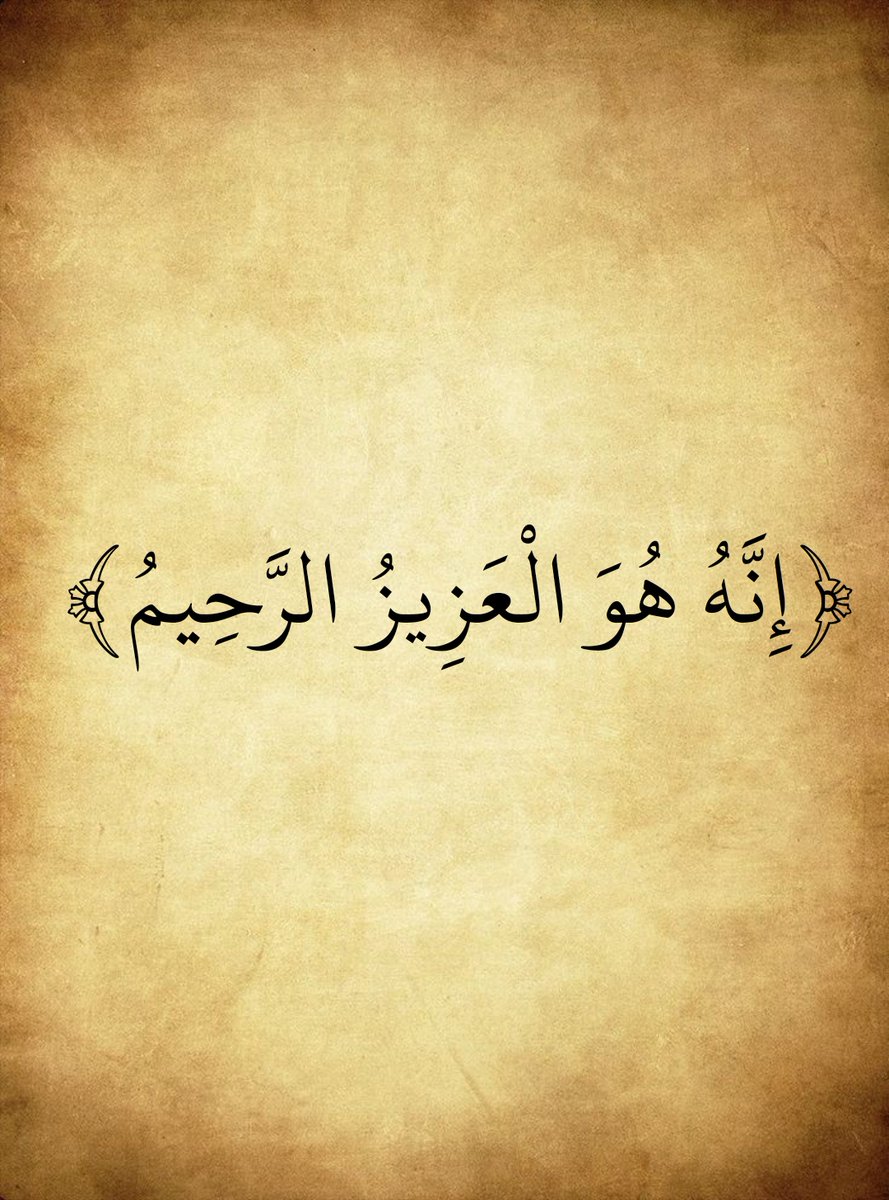 ﴿إِنَّهُ هُوَ الْعَزِيزُ الرَّحِيمُ﴾